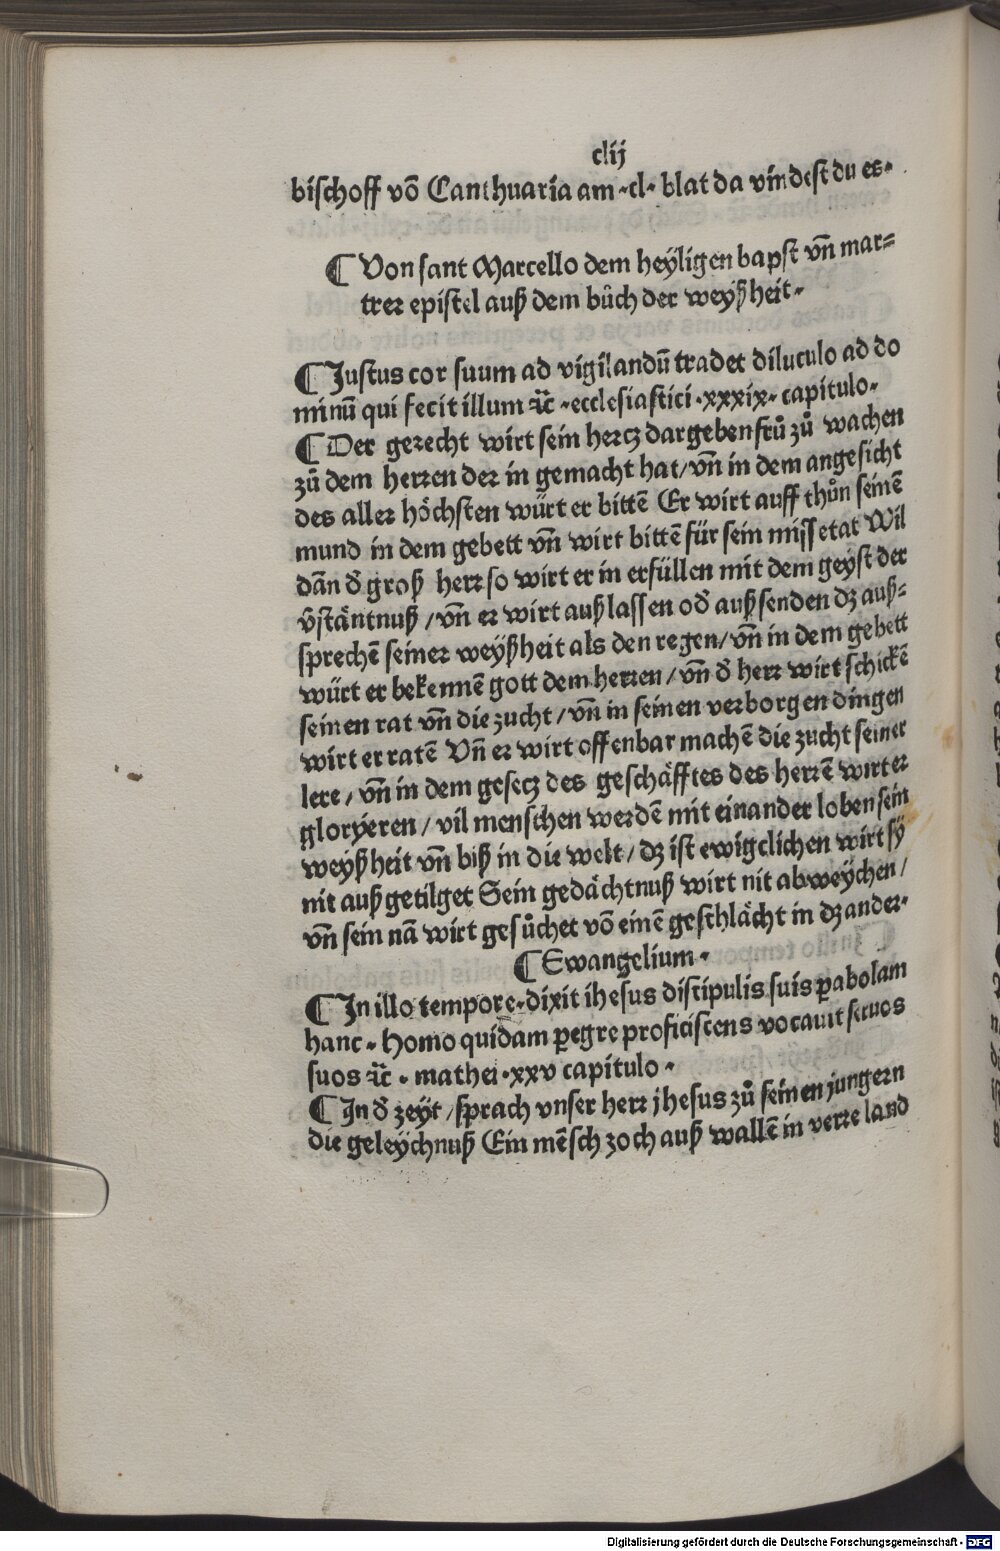 clij
bischoff võ Canthuaria am ·cl· blat da vindest du es·
¶ Von sant Marcello dem heÿligen bapst vñ mar⸗
trer epistel auß dem bůch der weyßheit·
¶ Justus cor suum ad vigilandũ tradet diluculo ad do
minũ qui fecit illum ⁊c̃ ·ecclesiastici ·xxxix· capitulo·
¶ Der gerecht wirt sein hertz dargeben frů zů wachen
zů dem herren der in gemacht hat/ vñ in dem angesicht
des aller höchsten würt er bittẽ Er wirt auff thůn seinẽ
mund in dem gebett vñ wirt bittẽ für sein missetat Wil
dañ d̕ groß herr so wirt er in erfüllen mit dem geyst der
v̕stäntnuß /vñ er wirt außlassen od̕ außsenden dz auß⸗
sprechẽ seiner weyßheit als den regen/ vñ in dem gebett
würt er bekennẽ gott dem herren / vñ d̕ herr wirt schickẽ
seinen rat vñ die zucht / vñ in seinen verborgen dingen
wirt er ratẽ Vñ er wirt offenbar machẽ die zucht seiner
lere / vñ in dem gesetz des geschäfftes des herrẽ wirt er
gloryeren / vil menschen werdẽ mit einander loben sein
weyßheit vñ biß in die welt / dz ist ewigclichen wirt sÿ
nit außgetilget Sein gedächtnuß wirt nit abweÿchen /
vñ sein nã wirt gesůchet võ einẽ geschlächt in dz ander·
¶ Ewangelium ·
¶ In illo tempore· dixit ihesus discipulis suis ꝑabolam
hanc · Homo quidam ꝑegre proficiscens vocauit seruos
suos ⁊c̃ · mathei ·xxv capitulo ·
¶ In d̕ zeyt /sprach vnser herr jhesus zů seinen jungern
die geleÿchnuß Ein mẽsch zoch auß wallẽ in verre land
Digitalisierung gefördert durch die Deutsche Forschungsgemeinschaft - DFG